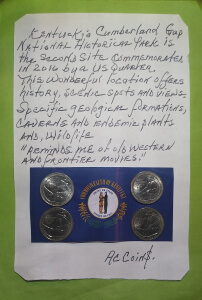 Kentucky's Cumberland Gap
National Historical Park is
the second site commemorated
in 2016 by a US Quarter.
This wonderful location offers
history, scenic spots and views,
specific geological formations,
caverns and endemic plants
and wildlife
"Reminds me of old western
and frontier movies."
AC Coins.